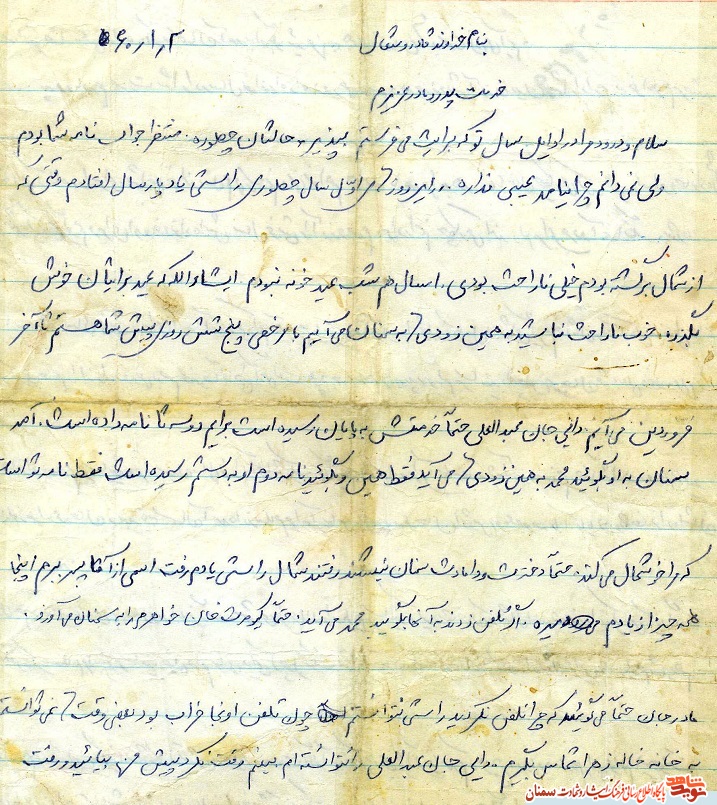 بنام خداوند قادر و متعال ۶۰/۱/۲
خدمت پدر و مادر عزیزم
سلام و درود مرا در اوایل سال نو که برایت می فرستم بپذیر. حالتان چطوره. منتظر جواب نامه شما بودم
ولی نمی دانم چرا نیامد عیبی نداره. در این روزهای اول سال چطوری راستی یاد پارسال افتادم وقتی که
از شمال برگشته بودم خیلی ناراحت بودی. امسال هم شب عید خونه نبودم انشاءالله که عید برایتان خوش
بگذره. خوب ناراحت نباشید به همین زودی ها به سمنان می آییم با مرخصی پنج شش روزی پیش شما هستم تا آخر
فروردین می آیم. دایی جان عبدالعلی حتماً خدمتش به پایان رسیده است برایم دو سه تا نامه داده است. آمد
سمنان به او بگوئید محمد به همین زودی ها می آید فقط همین و بگوئید نامه دوم او بدستم رسیده است فقط نامه تو است
که مرا خوشحال می کند. حتماً دخترت و دامادت سمنان نیستند رفتند شمال راستی یادم رفت اسمی از آقا پسر ببرم اینجا
همه چیز از یادم میره. اگر تلفن زدند به آنها بگوئید محمد می آید. حتماً کیومرث خان خواهرم را به سمنان می آورد.
مادر جان حتماً می گوئید که چرا تلفن نکردید راستی نتوانستم چون تلفن اونجا خراب بود بعضی وقت ها نمی توانستم
به خانه خاله زهرا تماس بگیرم. دایی جان عبدالعلی را نتوانسته ام ببینم وقت نکرد پیش من بیائید و رفت
نوید شاهد
پایگاه اطلاع رسانی فرهنگ ایثار و شهادت سمنان